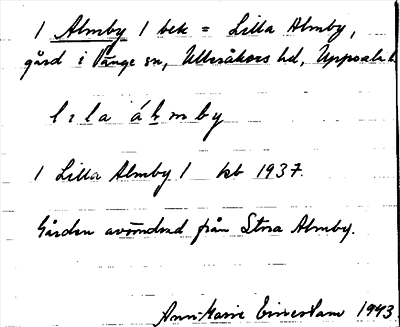 / Almby / bek = Lilla Almby,
gård i Vänge sn, Ulleråkers hd, Uppsala l.
lɩla áḷmby
/ Lilla Almby / kb 1937.
Gården avsöndrad från Stora Almby.
Ann-Marie 1943